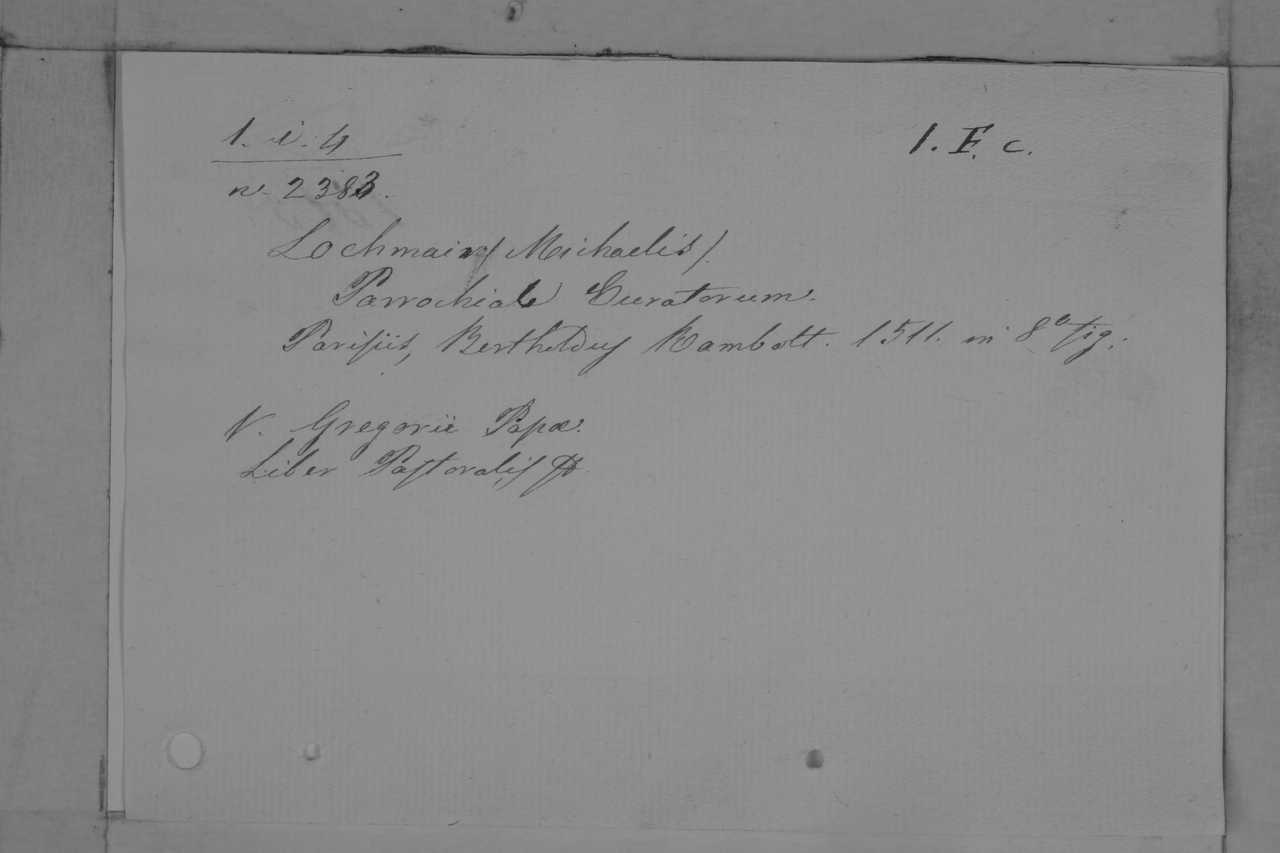 1. i. 4
1. F. c.
n. 2383.
Lochmair (Michaelis).
Parrochiale Curatorum.
Parisiis, Bertholdus Rambolt. 1511. in 8º fig.
V. Gregorii Papæ.
Liber Pastoralis